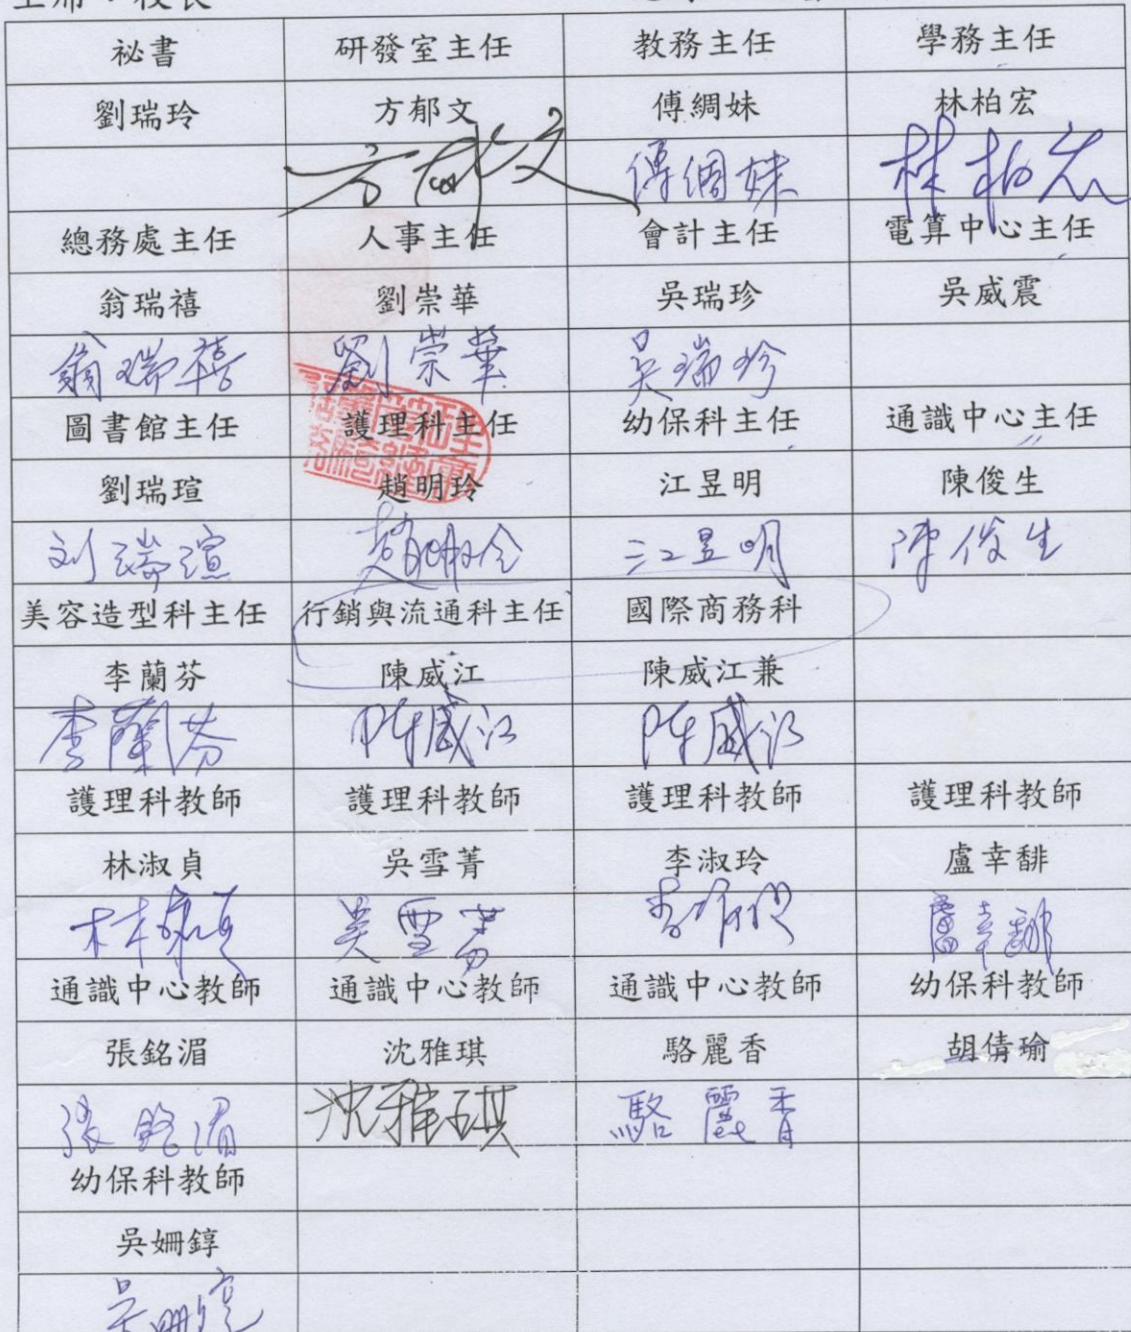 主席：校長
祕書 研發室主任 教務主任 學務主任
劉瑞玲 方郁文 傅綢妹 林柏宏
方郁文 傅綢妹 林柏宏
總務處主任 人事主任 會計主任 電算中心主任
翁瑞禧 劉崇華 吳瑞珍 吳威震
翁瑞禧 劉崇華 吳瑞珍
圖書館主任 護理科主任 幼保科主任 通識中心主任
劉瑞瑄 趙明玲 江昱明 陳俊生
刘瑞瑄 趙明玲 江昱明 陳俊生
美容造型科主任 行銷與流通科主任 國際商務科
李蘭芬 陳威江 陳威江兼
李蘭芬 陈威江 陈威江
護理科教師 護理科教師 護理科教師 護理科教師
林淑貞 吳雪菁 李淑玲 盧幸馡
林淑貞 吳雪菁 盧幸馡
通識中心教師 通識中心教師 通識中心教師 幼保科教師
張銘湄 沈雅琪 駱麗香 胡倩瑜
張銘湄 沈雅琪 駱麗香
幼保科教師
吳姍錞
吳姍錞